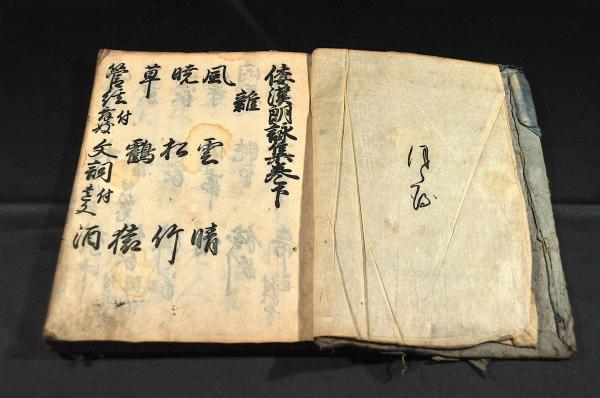 倭漢朗詠集巻下
雜
風 雲 晴
暁 松 竹
草 鶴 猿
管絃付 文詞付 酒